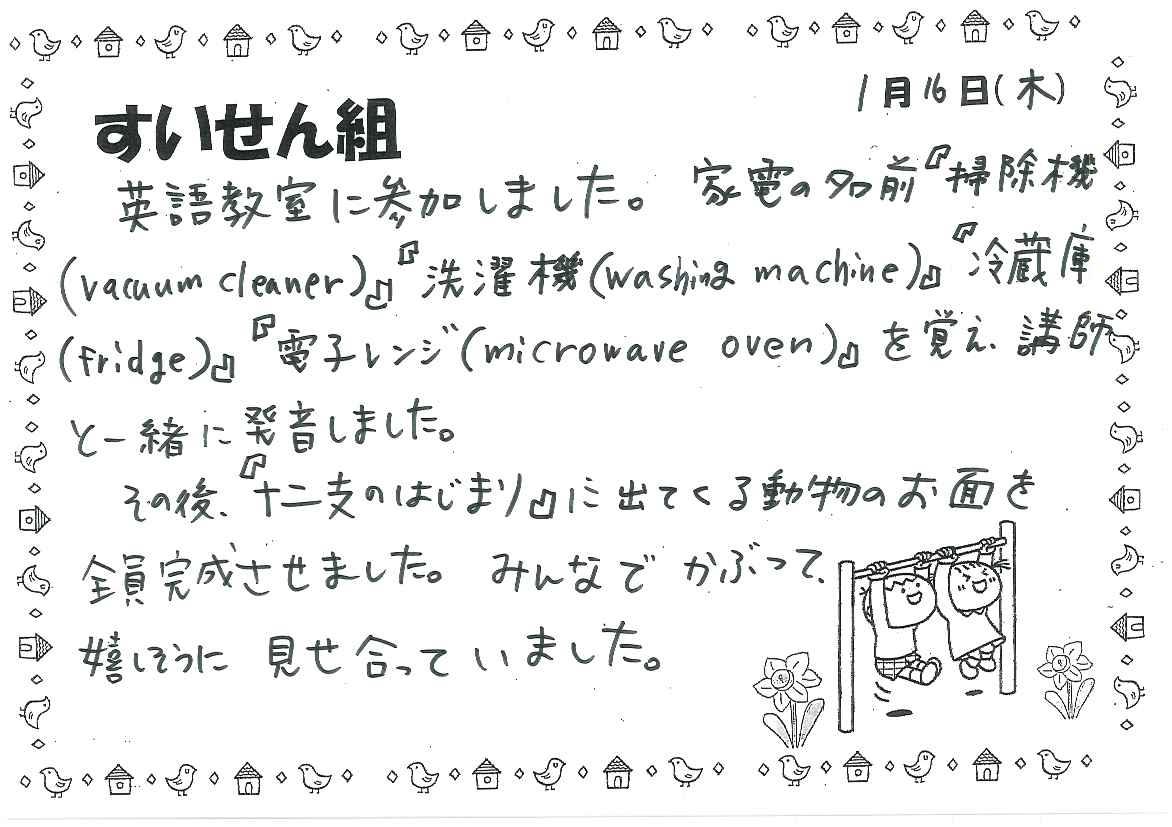 1月16日(木)
すいせん組
英語教室に参加しました。家電の名前『掃除機
(vacuum cleaner)』『洗濯機(washing machine)』『冷蔵庫
(fridge)』『電子レンジ(microwave oven)』を覚え、講師
と一緒に発音しました。
その後、『十二支のはじまり』に出てくる動物のお面を
全員完成させました。みんなでかぶって、
嬉しそうに見せ合っていました。